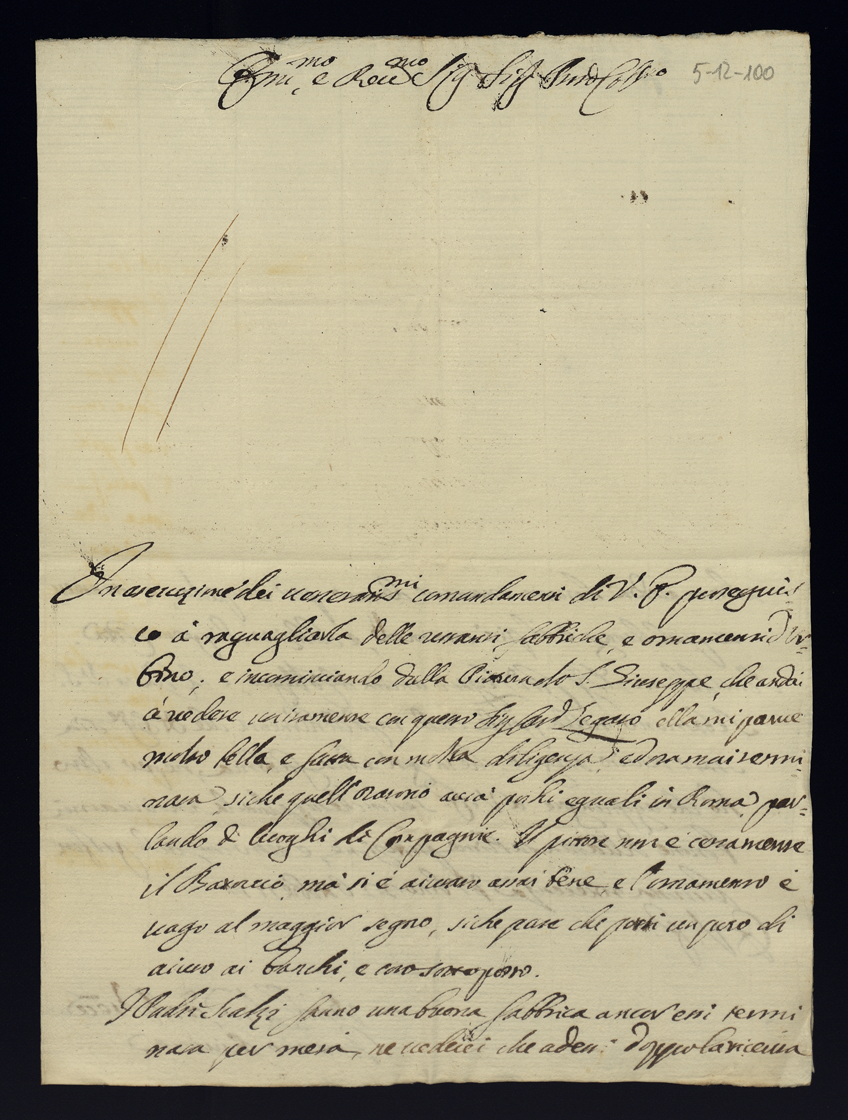 Em.mo e Rev.mo Sig. Sig. Pnrõ Col.mo
5-12-100
In esecuzione dei veneratis.mi comandamenti di V. E. proseguis:
co à ragguagliarla delle restanti fabbriche, e ornamenti d'Ur-
bino; e incominciando dalla Pittura di S. Giuseppe, che andai
à vedere unitamente con questo Sig.r Card. Legato, ella mi parve
molto bella, e fatta con molta diligenza, ed oramai termi-
nata, siche quell'oratorio avrà pochi eguali in Roma, par-
lando di luoghi di Compagnie. Il pittore non è certamente
il Barocci, mà si è aiutato assai bene, e l'ornamento è
vago al maggior segno, siche pare che porti un poco di
aiuto ai banchi, e coro sottoposto.
I Padri Scalzi fanno una buona fabbrica ancor essi termi
nata per metà, ne vedrei che adess: doppo la ricevuta